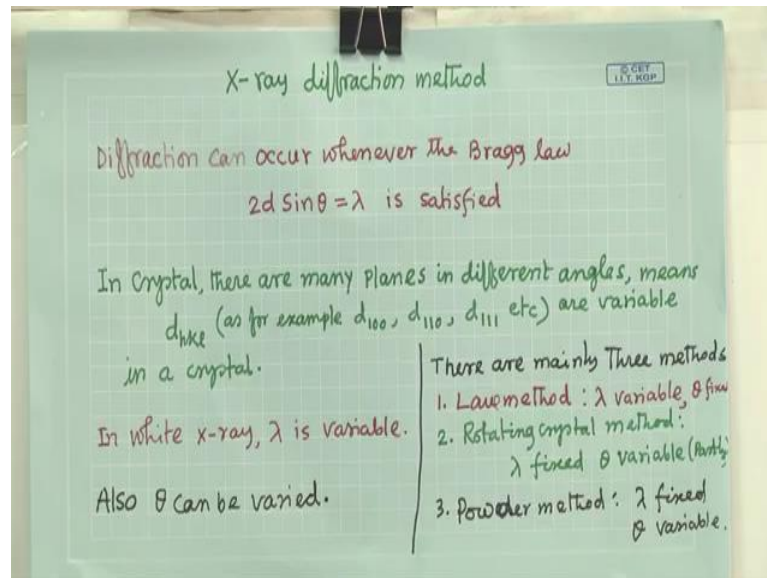 X-ray diffraction method
© CET
I.I.T. KGP
Diffraction can occur whenever the Bragg law
2d Sinθ = λ is satisfied
In Crystal, there are many planes in different angles, means
dhkl (as for example d100, d110, d111 etc) are variable
in a crystal.
In white x-ray, λ is variable.
Also θ can be varied.
There are mainly Three methods
1. Laue method : λ variable, θ fixe
2. Rotating crystal method :
λ fixed θ variable (Partly
3. Powder method : λ fixed
θ variable.